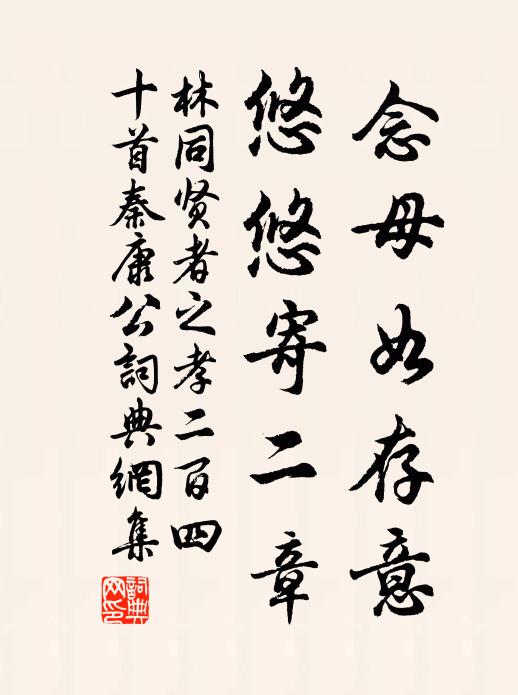 念母如存意
悠悠寄二章
林同贤者之孝二百四
十首秦康公詞典網集